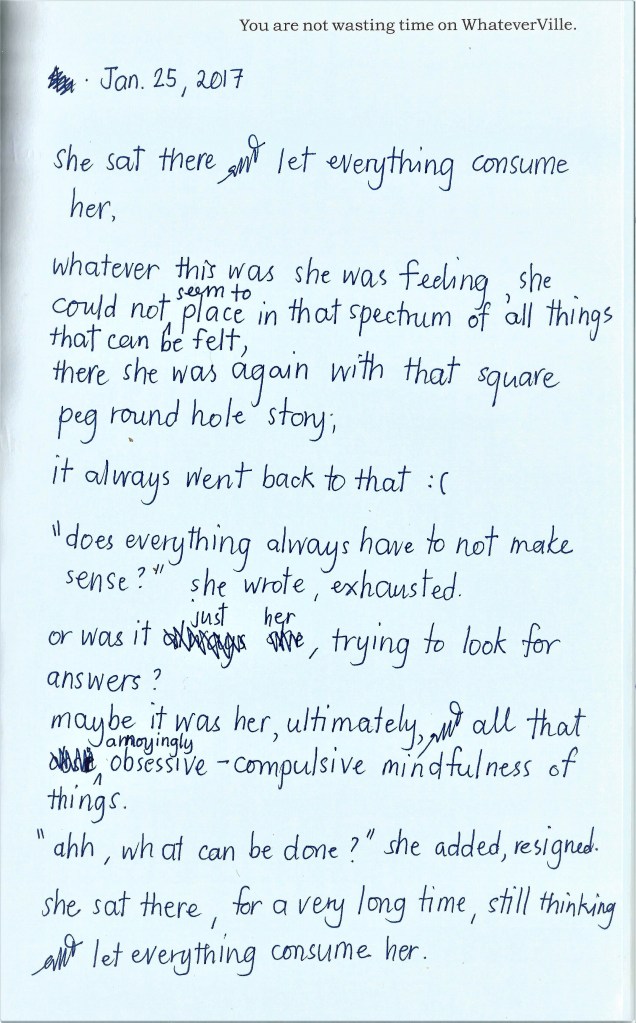 You are not wasting time on WhateverVille.
· Jan. 25, 2017
she sat there and let everything consume
her,
whatever this was she was feeling, she
could not seem to place in that spectrum of all things
that can be felt,
there she was again with that square
peg round hole story;
it always went back to that :(
"does everything always have to not make
sense?" she wrote, exhausted.
or was it just her, trying to look for
answers?
maybe it was her, ultimately, and all that
annoyingly obsessive-compulsive mindfulness of
things.
"ahh, what can be done?" she added, resigned.
she sat there, for a very long time, still thinking
and let everything consume her.